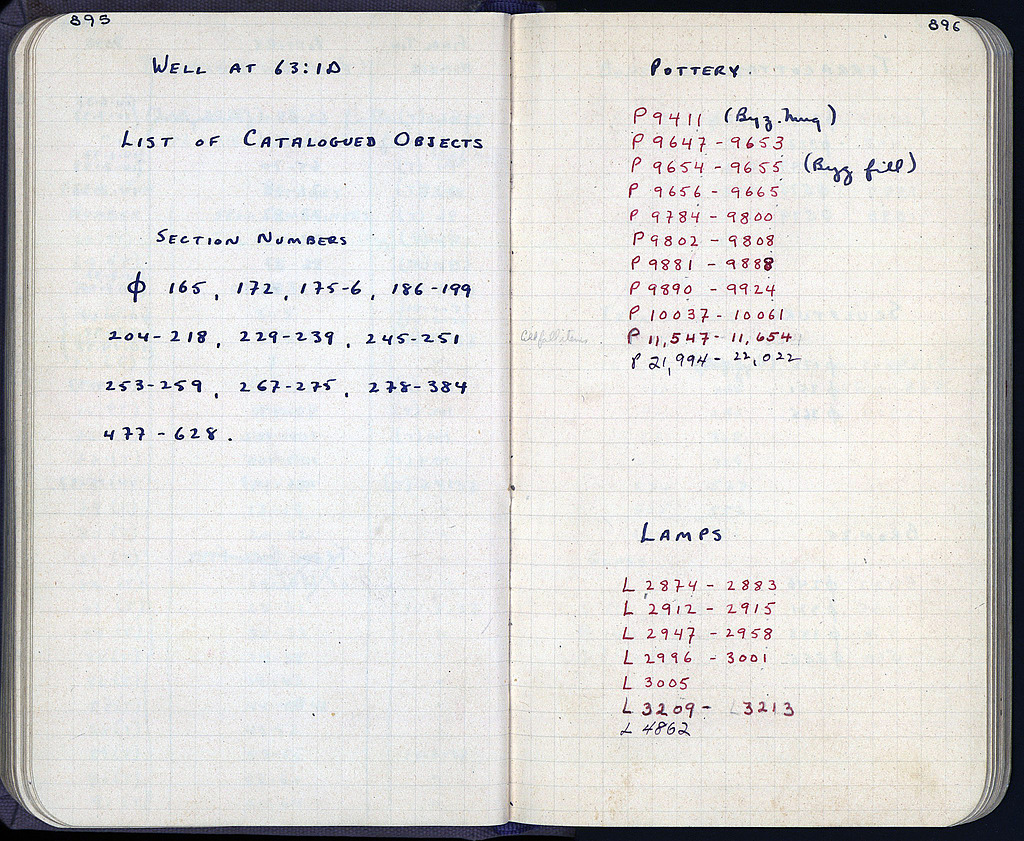 895
WELL AT 63:1D
LIST OF CATALOGUED OBJECTS
SECTION NUMBERS
ϕ 165, 172, 175-6, 186-199
204-218, 229-239, 245-251
253-259, 267-275, 278-384
477-628.
896
POTTERY
P 9411 (Byz. )
P 9647 - 9653
P 9654 - 9655 (Byz fill)
P 9656 - 9665
P 9784 - 9800
P 9802 - 9808
P 9881 - 9888
P 9890 - 9924
P 10037 - 10061
P 11,547 - 11,654
P 21,994 - 22,022
LAMPS
L 2874 - 2883
L 2912 - 2915
L 2947 - 2958
L 2996 - 3001
L 3005
L 3209 - L 3213
L 4862